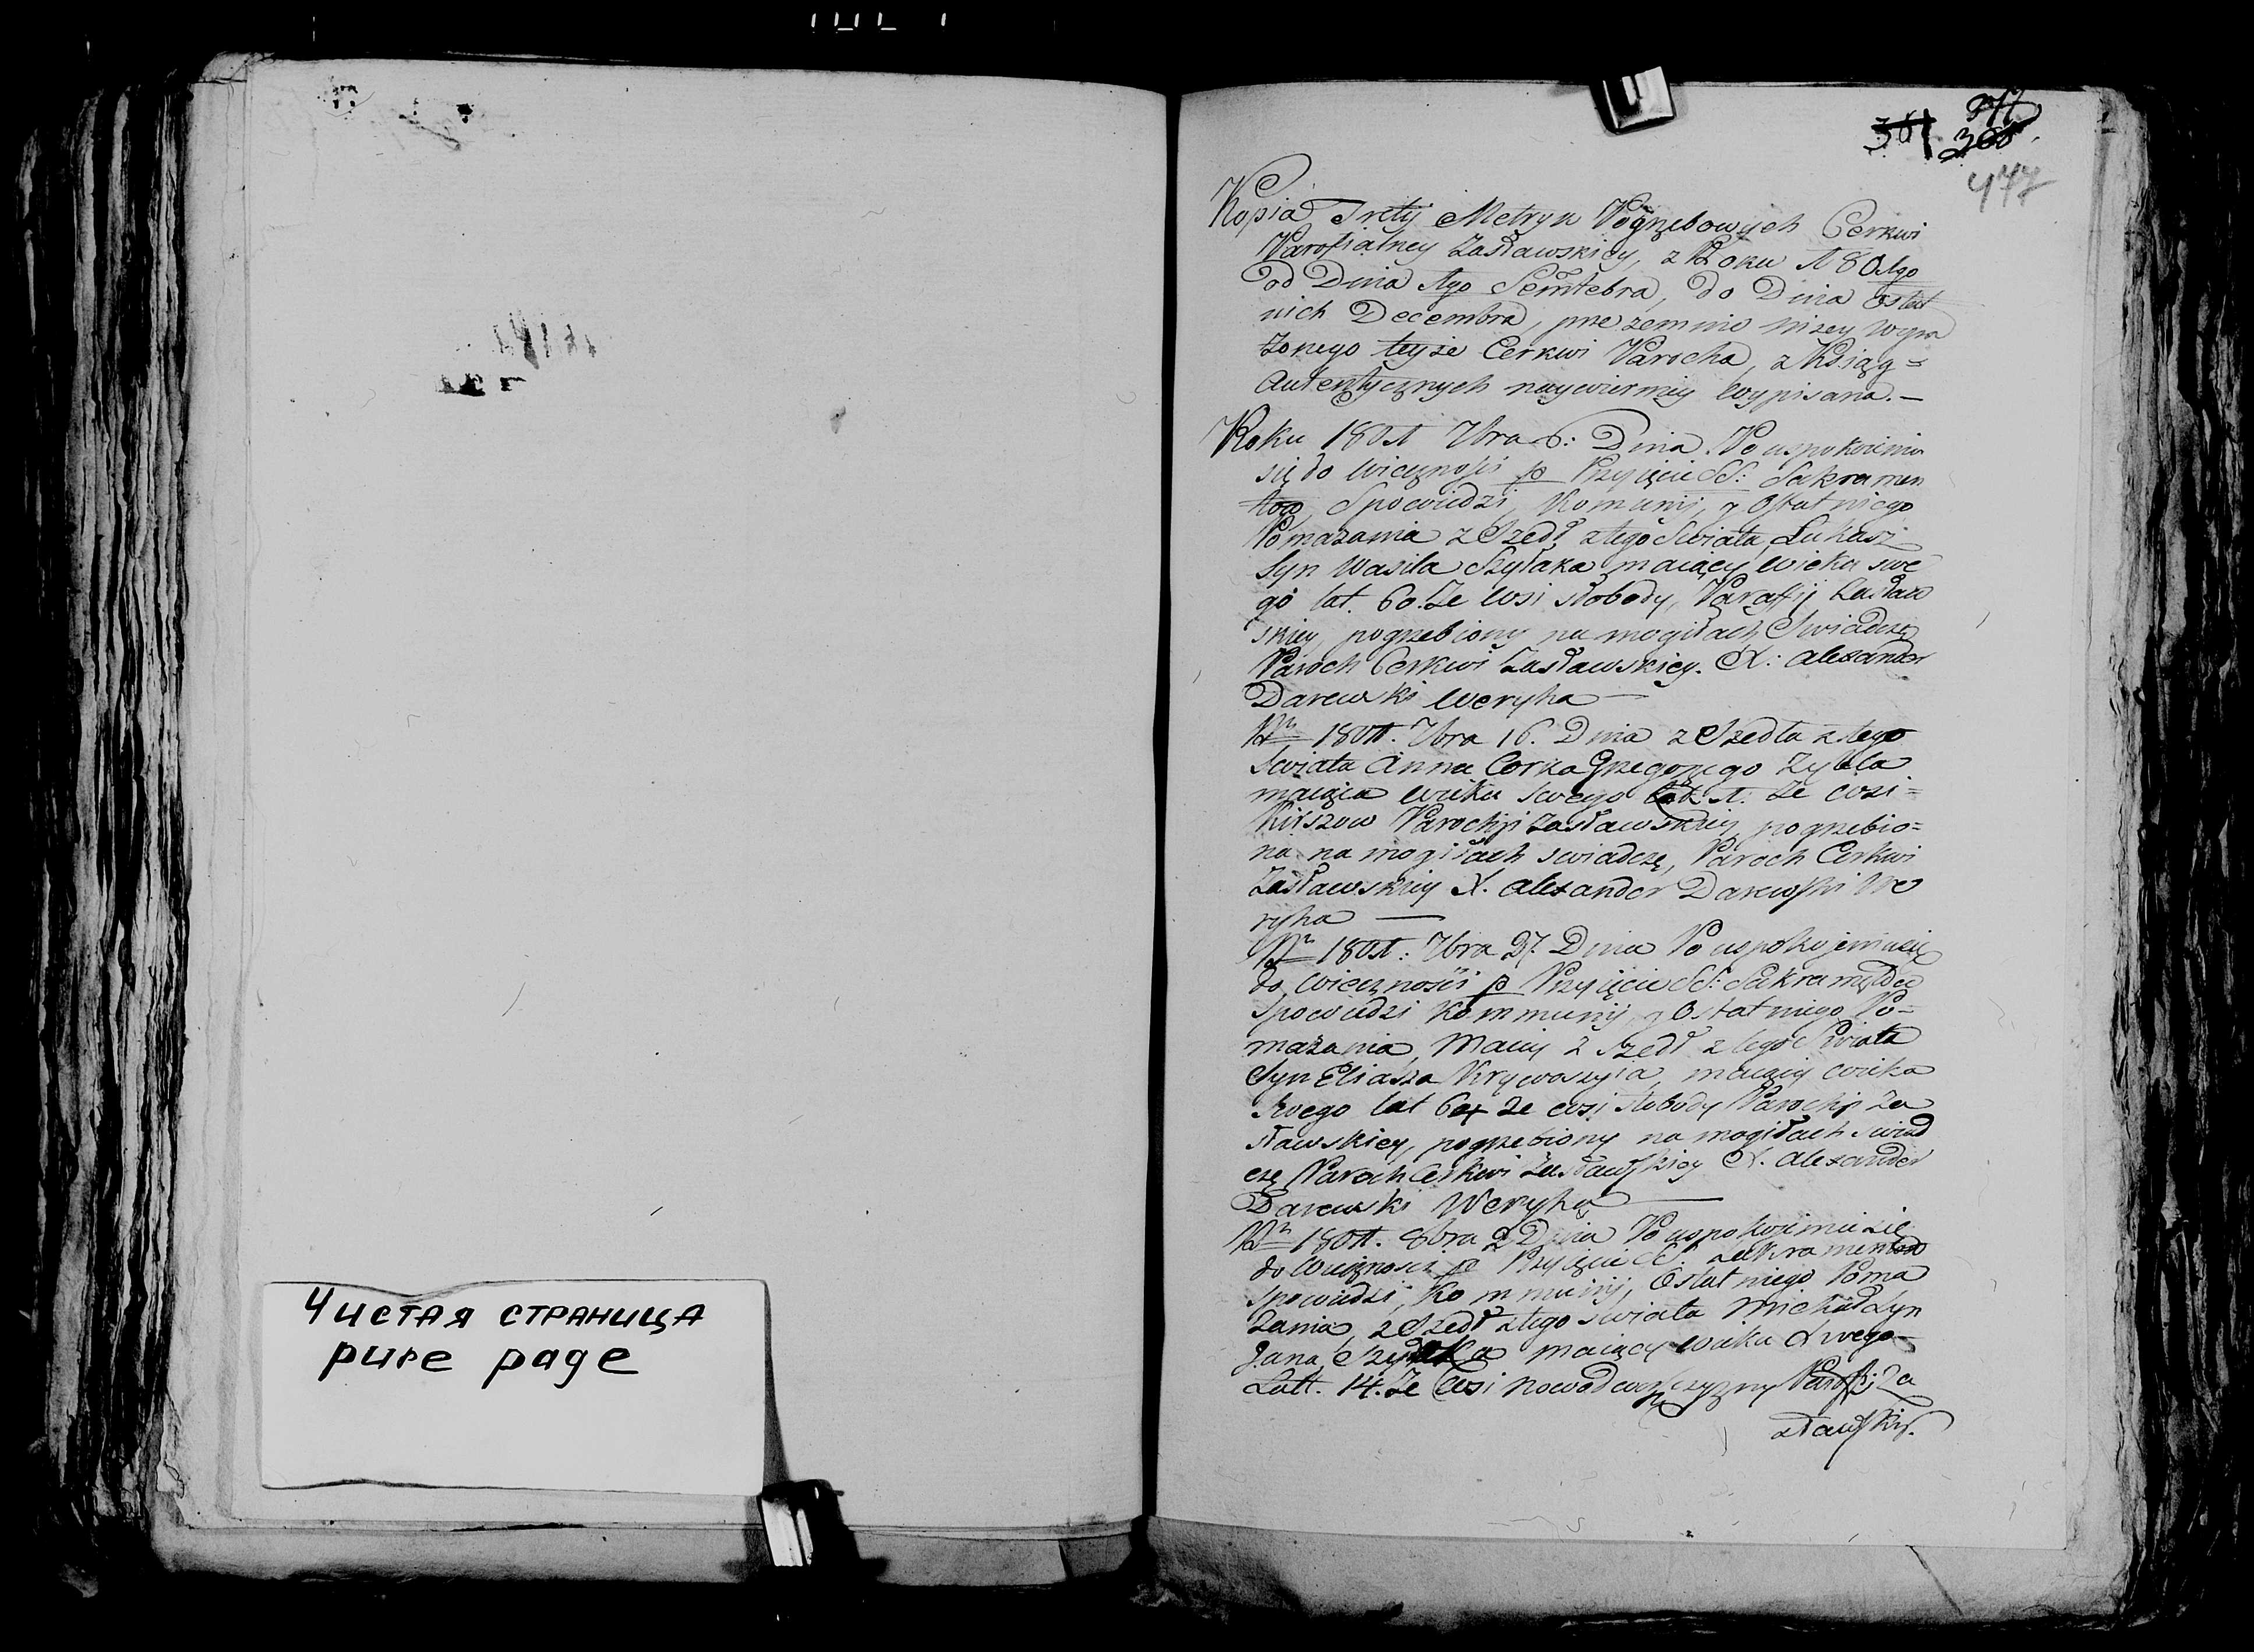 Чистая страница
pure page
361
477
Kopia Tretij Metryk Pogrzebowych Cerkwi
Parofialney Zasławskiey, z Roku 1801go
od Dnia 1go Semtebra, do Dnia Ostat
nich Decembra, przezemnie niżey wyra
żonego teyże Cerkwi Parocha, z Ksiąg =
Autentycznych naywierniey wypisana. —
Roku 1801 7bra 6: Dnia Po uspokoieniu
się do wieczności p Przyięciu SS: Sakramen
tow, Spowiedzi, Komunij, y Ostatniego
Pomazania zSzedł ztego Swiata Łukasz
Syn Wasila Szyłaka maiący wieku swe
go lat. 60. Ze wsi słobody, Parafij Zasław
skiey pogrzebiony na mogiłach Swiadczę
Paroch Cerkwi Zasławskiey. X: Alexander
Darewski Weryha —
1801. 7bra 16. Dnia zSzedła ztego
Swiata Anna Corka Grzegorzego
maiąca wieku swego lat 1. Ze wsi =
Parochji Zasławskiey pogrzebio=
na na mogiłach swiadczę, Paroch Cerkwi
Zasławskiey X. Alexander Darewski We
ryha —
1801: 7bra 27. Dnia Po uspokojeniusię
do wieczności p Przyięciu SS: Sakramętow
Spowiedzi Kommunij y Ostatniego Po=
mazania, Maciey zSzedł ztego Swiata
Syn Eliasza Krywoszyia, maiący wieka
swego lat 64 Ze wsi słobody Parochji Za
sławskiey, pogrzebiony na mogiłach swiad
czę Paroch Cerkwi Zasławskiey X. Alexander
Darewski Weryha —
1801. 8bra 2 Dnia Po uspokoieniusie
do Wieczności p Przyięciu SS. Sakramentow
Spowiedzi, Kommunij, Ostatniego Poma
zania, zSzedł ztego swiata Michał Syn
Jana maiący wieku Swego
Latt. 14. Ze Wsi Nowodworszczyzny Parofji Za
sławskiey.